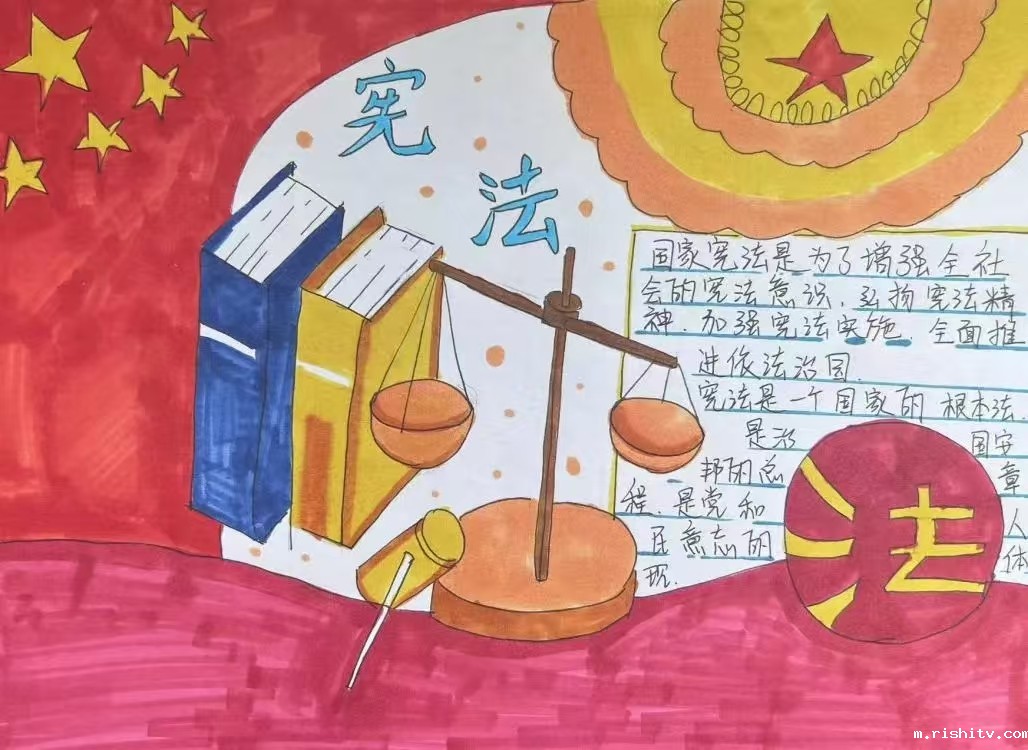 宪法
国家宪法是为了增强全社
会的宪法意识.弘扬宪法精
神.加强宪法实施.全面推
进依法治国.
宪法是一个国家的根本法.
是治 国安
邦的总 章
程.是党和 人
民意志的 体
现.
法
m.rishitv.com